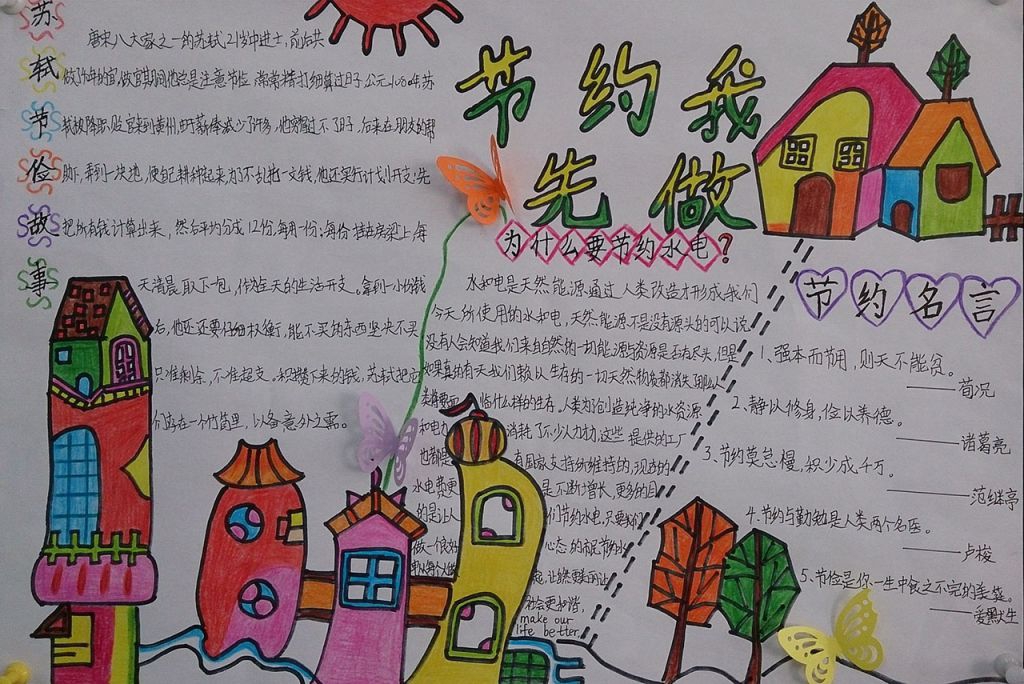 苏轼节俭故事
唐宋八大家之一的苏轼21岁中进士，前后共
做了40年的官，做官期间他总是注意节俭，常常精打细算过日子。公元1080年，苏
轼被降职贬官来到黄州，由于薪俸减少了许多，他穷得过不了日子，后来在朋友的帮
助下，弄到一块地，便自己耕种起来，为了不乱花一文钱，他还实行计划开支：先
把所有钱计算出来，然后平均分成12份，每月一份；每份
天清晨取下一包，作为全天的生活开支。拿到一小份钱
后，他还要仔细权衡，能不买的东西坚决不买
只准剩余，不准超支。积攒下来的钱，苏轼把它
们存在一个竹筒里，以备意外之需。
节约我
先做
为什么要节约水电？
水和电是天然能源通过人类改造才形成，我们
今天所使用的水和电，天然能源不是没有源头的可以说
没有人会知道我们来自自然的一切能源与资源是否有尽头，但是
如果真的有天我们赖以生存的一切天然物质都消失，那么人
类将要面临什么样的生存，人类为了创造纯净的水资源
和电力 消耗了不少人力物力，这些 提供的工厂
也都是 有国家支持所维持的，现在的
水电费更 是不断增长，更多的目
的是让人 们节约水电，只要我们
做一个良好 心态的
社会更和谐，
make our
life better
节约名言
1、强本而节用，则天不能贫。
——荀况
2、静以修身，俭以养德。
——诸葛亮
3、节约莫怠慢，积少成千万。
——范继亭
4、节约与勤勉是人类两个名医。
——卢梭
5、节俭是你一生中食之不完的美筵。
——爱默生